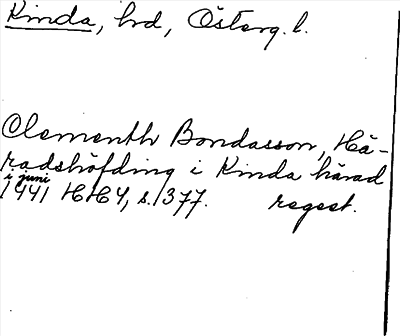 Kinda, hrd, Österg. l.
Clementh Bondasson, Hä-
radshöfding i Kinda härad
i juni
1441 HH4, s. 377. regest.